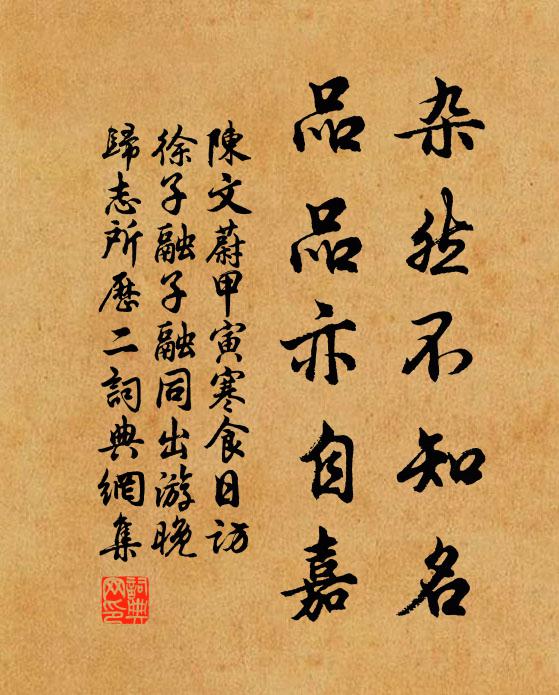 杂然不知名
品品亦自嘉
陳文蔚甲寅寒食日訪
徐子融子融同出游晚
歸志所歷二詞典網集
詞典網印